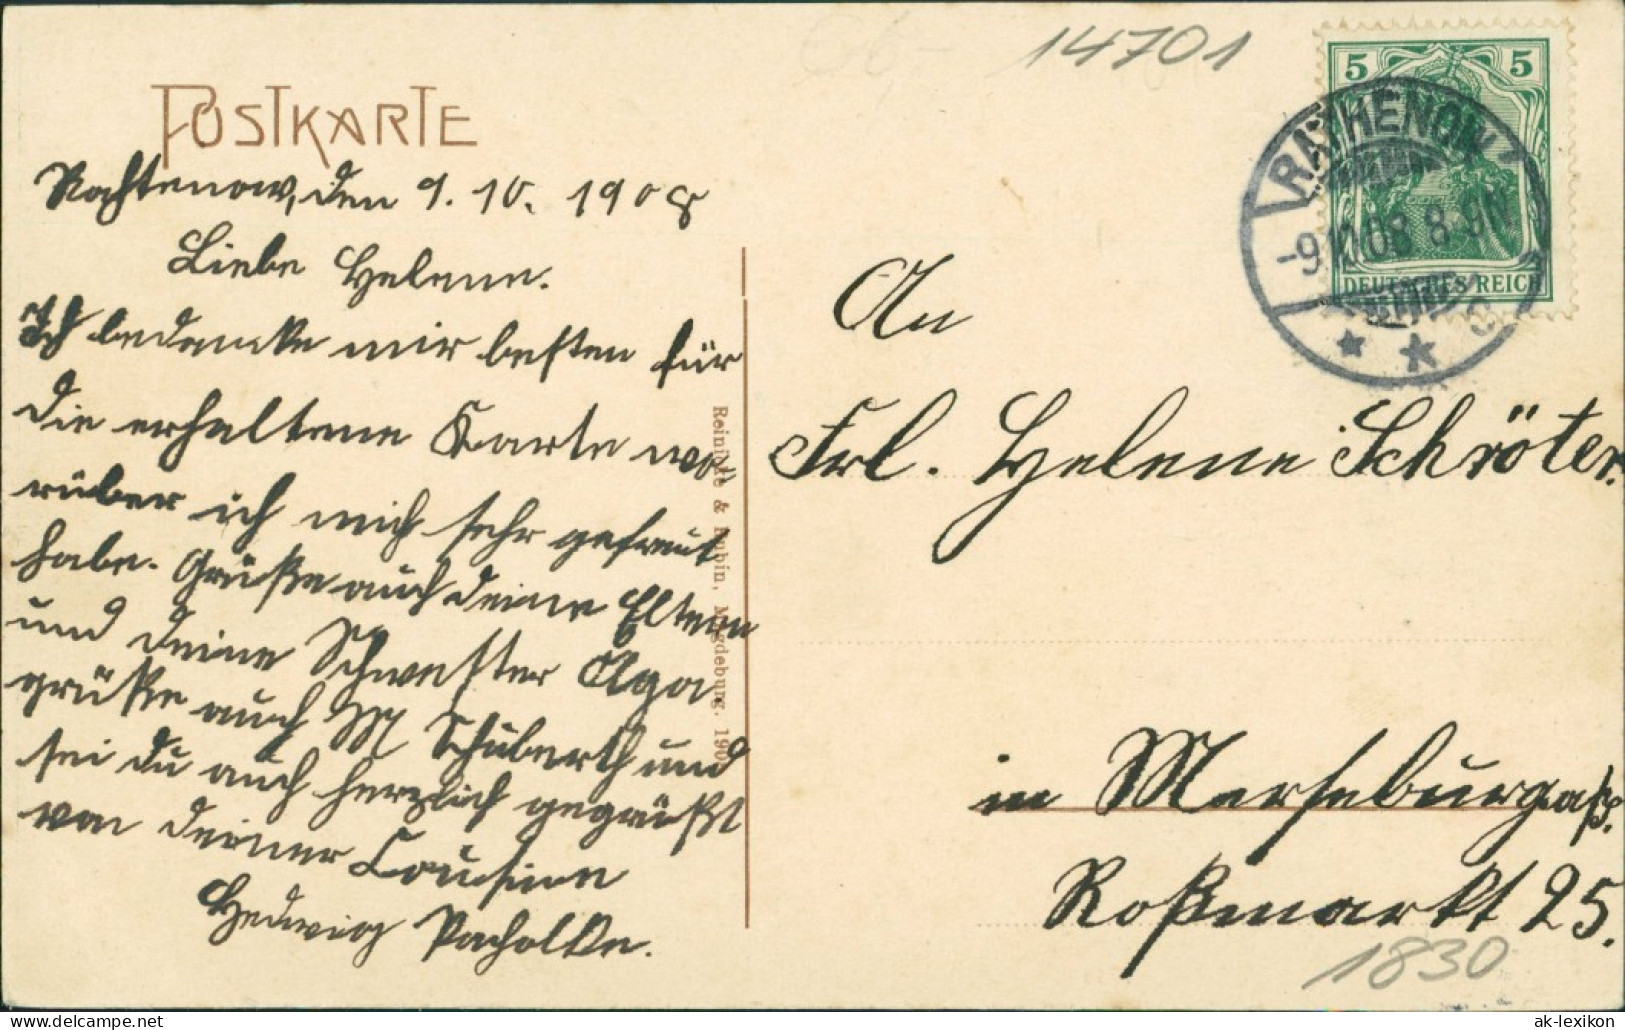 14701
POSTKARTE
Rathenow, den 9. 10. 1908
Liebe Helene.
Ich bedanke mir besten für
die erhaltene Karte wo-
rüber ich mich sehr gefreut
habe. Grüße auch deine Eltern
und deine Schwester Olga
grüße auch M Schuberth und
sei du auch herzlich gegrüßt
von deiner Cousine
Hedwig Pacholke.
Reinicke & Rubin, Magdeburg. 190
5 5
DEUTSCHES REICH
RATHENOW
-9.10.08 8-9N
* *
An
Frl. Helene Schröter.
in Merseburg
Roßmarkt 25.
1830
ak-lexikon
www.delcampe.net